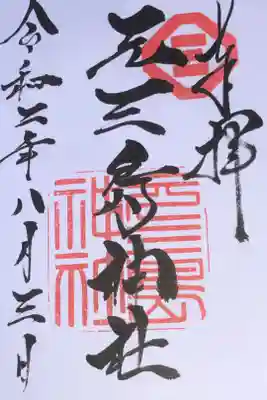 奉拝
三
元三島神社
元三島
神社
令和二年八月三日